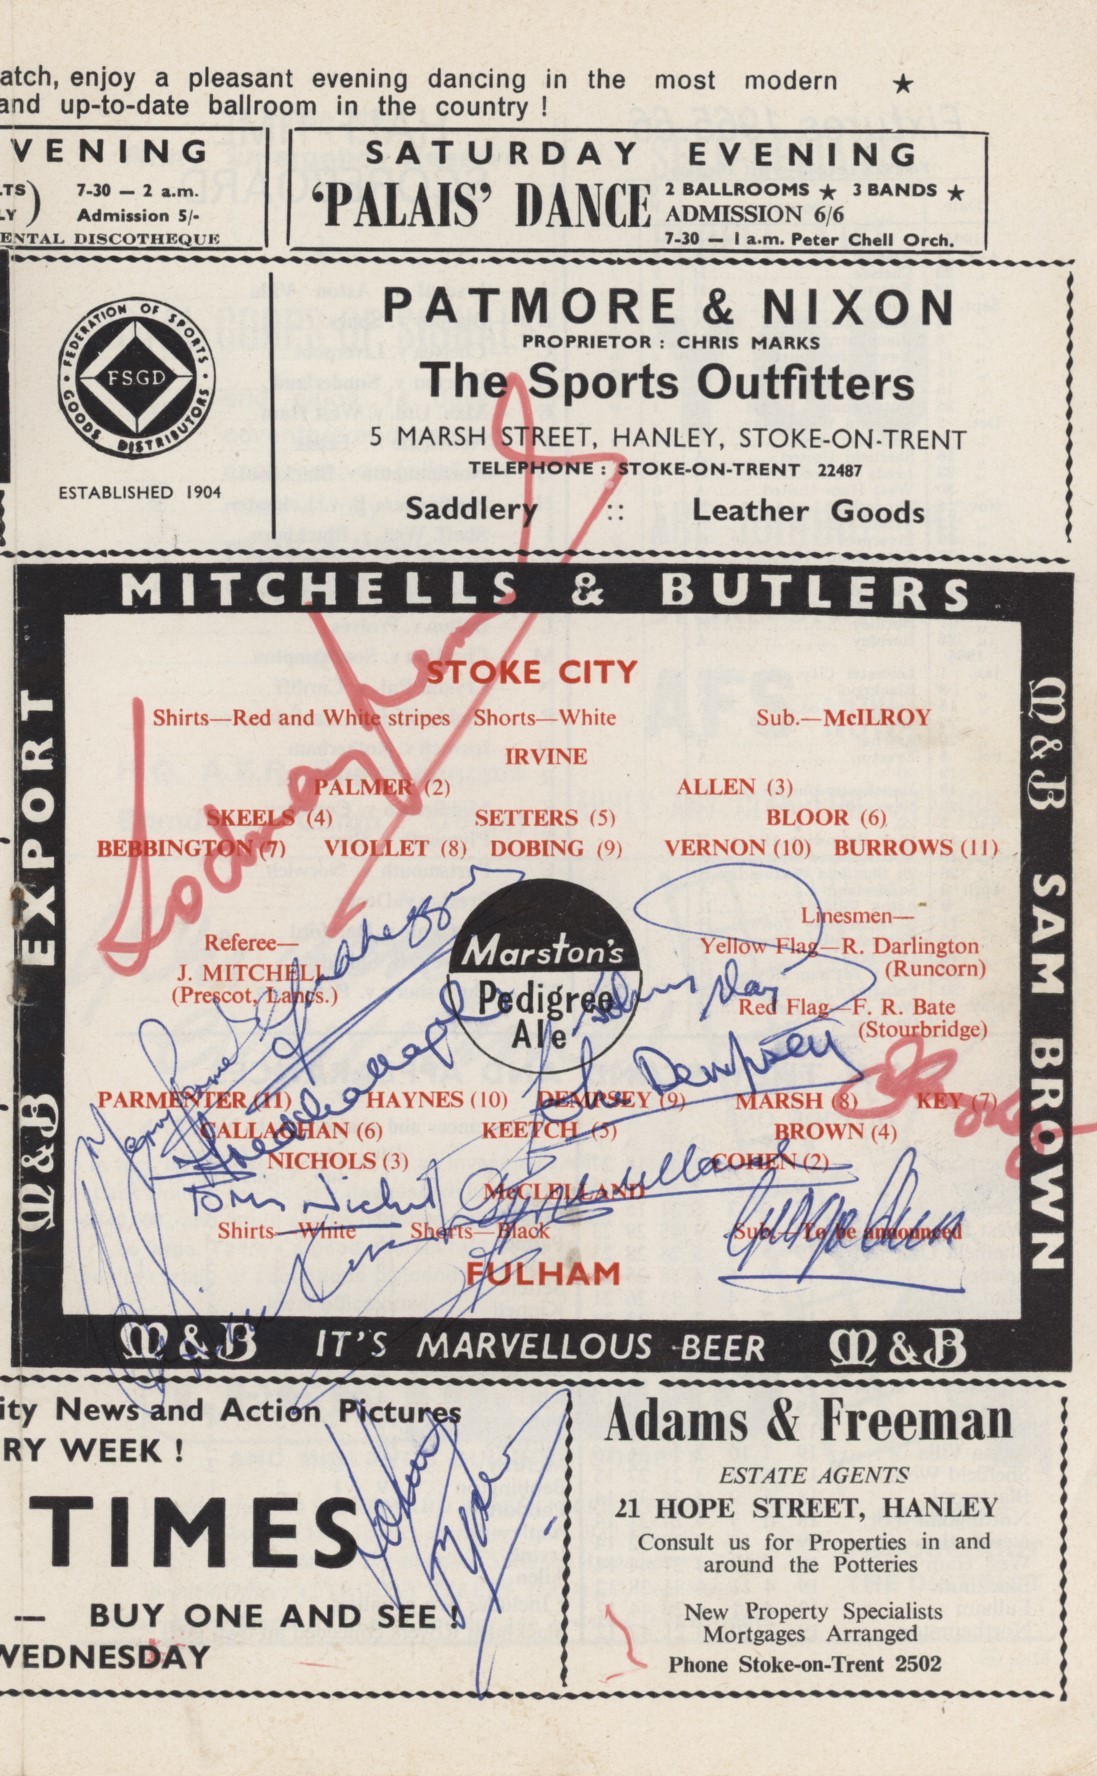 atch, enjoy a pleasant evening dancing in the most modern ★
and up-to-date ballroom in the country !
VENING
LTS) 7-30 — 2 a.m.
LY) Admission 5/-
ENTAL DISCOTHEQUE
SATURDAY EVENING
'PALAIS' DANCE 2 BALLROOMS ★ 3 BANDS ★
ADMISSION 6/6
7-30 — 1 a.m. Peter Chell Orch.
FEDERATION OF SPORTS GOODS DISTRIBUTORS
FSGD
ESTABLISHED 1904
PATMORE & NIXON
PROPRIETOR : CHRIS MARKS
The Sports Outfitters
5 MARSH STREET, HANLEY, STOKE-ON-TRENT
TELEPHONE : STOKE-ON-TRENT 22487
Saddlery :: Leather Goods
MITCHELLS & BUTLERS
M&B EXPORT
M&B SAM BROWN
STOKE CITY
Shirts—Red and White stripes Shorts—White Sub.—McILROY
IRVINE
PALMER (2) ALLEN (3)
SKEELS (4) SETTERS (5) BLOOR (6)
BEBBINGTON (7) VIOLLET (8) DOBING (9) VERNON (10) BURROWS (11)
Referee—
J. MITCHELL
(Prescot, Lancs.)
Marston's
Pedigree
Ale
Linesmen—
Yellow Flag—R. Darlington
(Runcorn)
Red Flag—F. R. Bate
(Stourbridge)
Dempsey
PARMENTER (11) HAYNES (10) DEMPSEY (9) MARSH (8) KEY (7)
CALLAGHAN (6) KEETCH (5) BROWN (4)
NICHOLS (3) COHEN (2)
McCLELLAND
Shirts—White Shorts—Black Sub.—To be announced
FULHAM
M&B IT'S MARVELLOUS BEER M&B
ity News and Action Pictures
RY WEEK !
TIMES
— BUY ONE AND SEE !
WEDNESDAY
Adams & Freeman
ESTATE AGENTS
21 HOPE STREET, HANLEY
Consult us for Properties in and
around the Potteries
New Property Specialists
Mortgages Arranged
Phone Stoke-on-Trent 2502